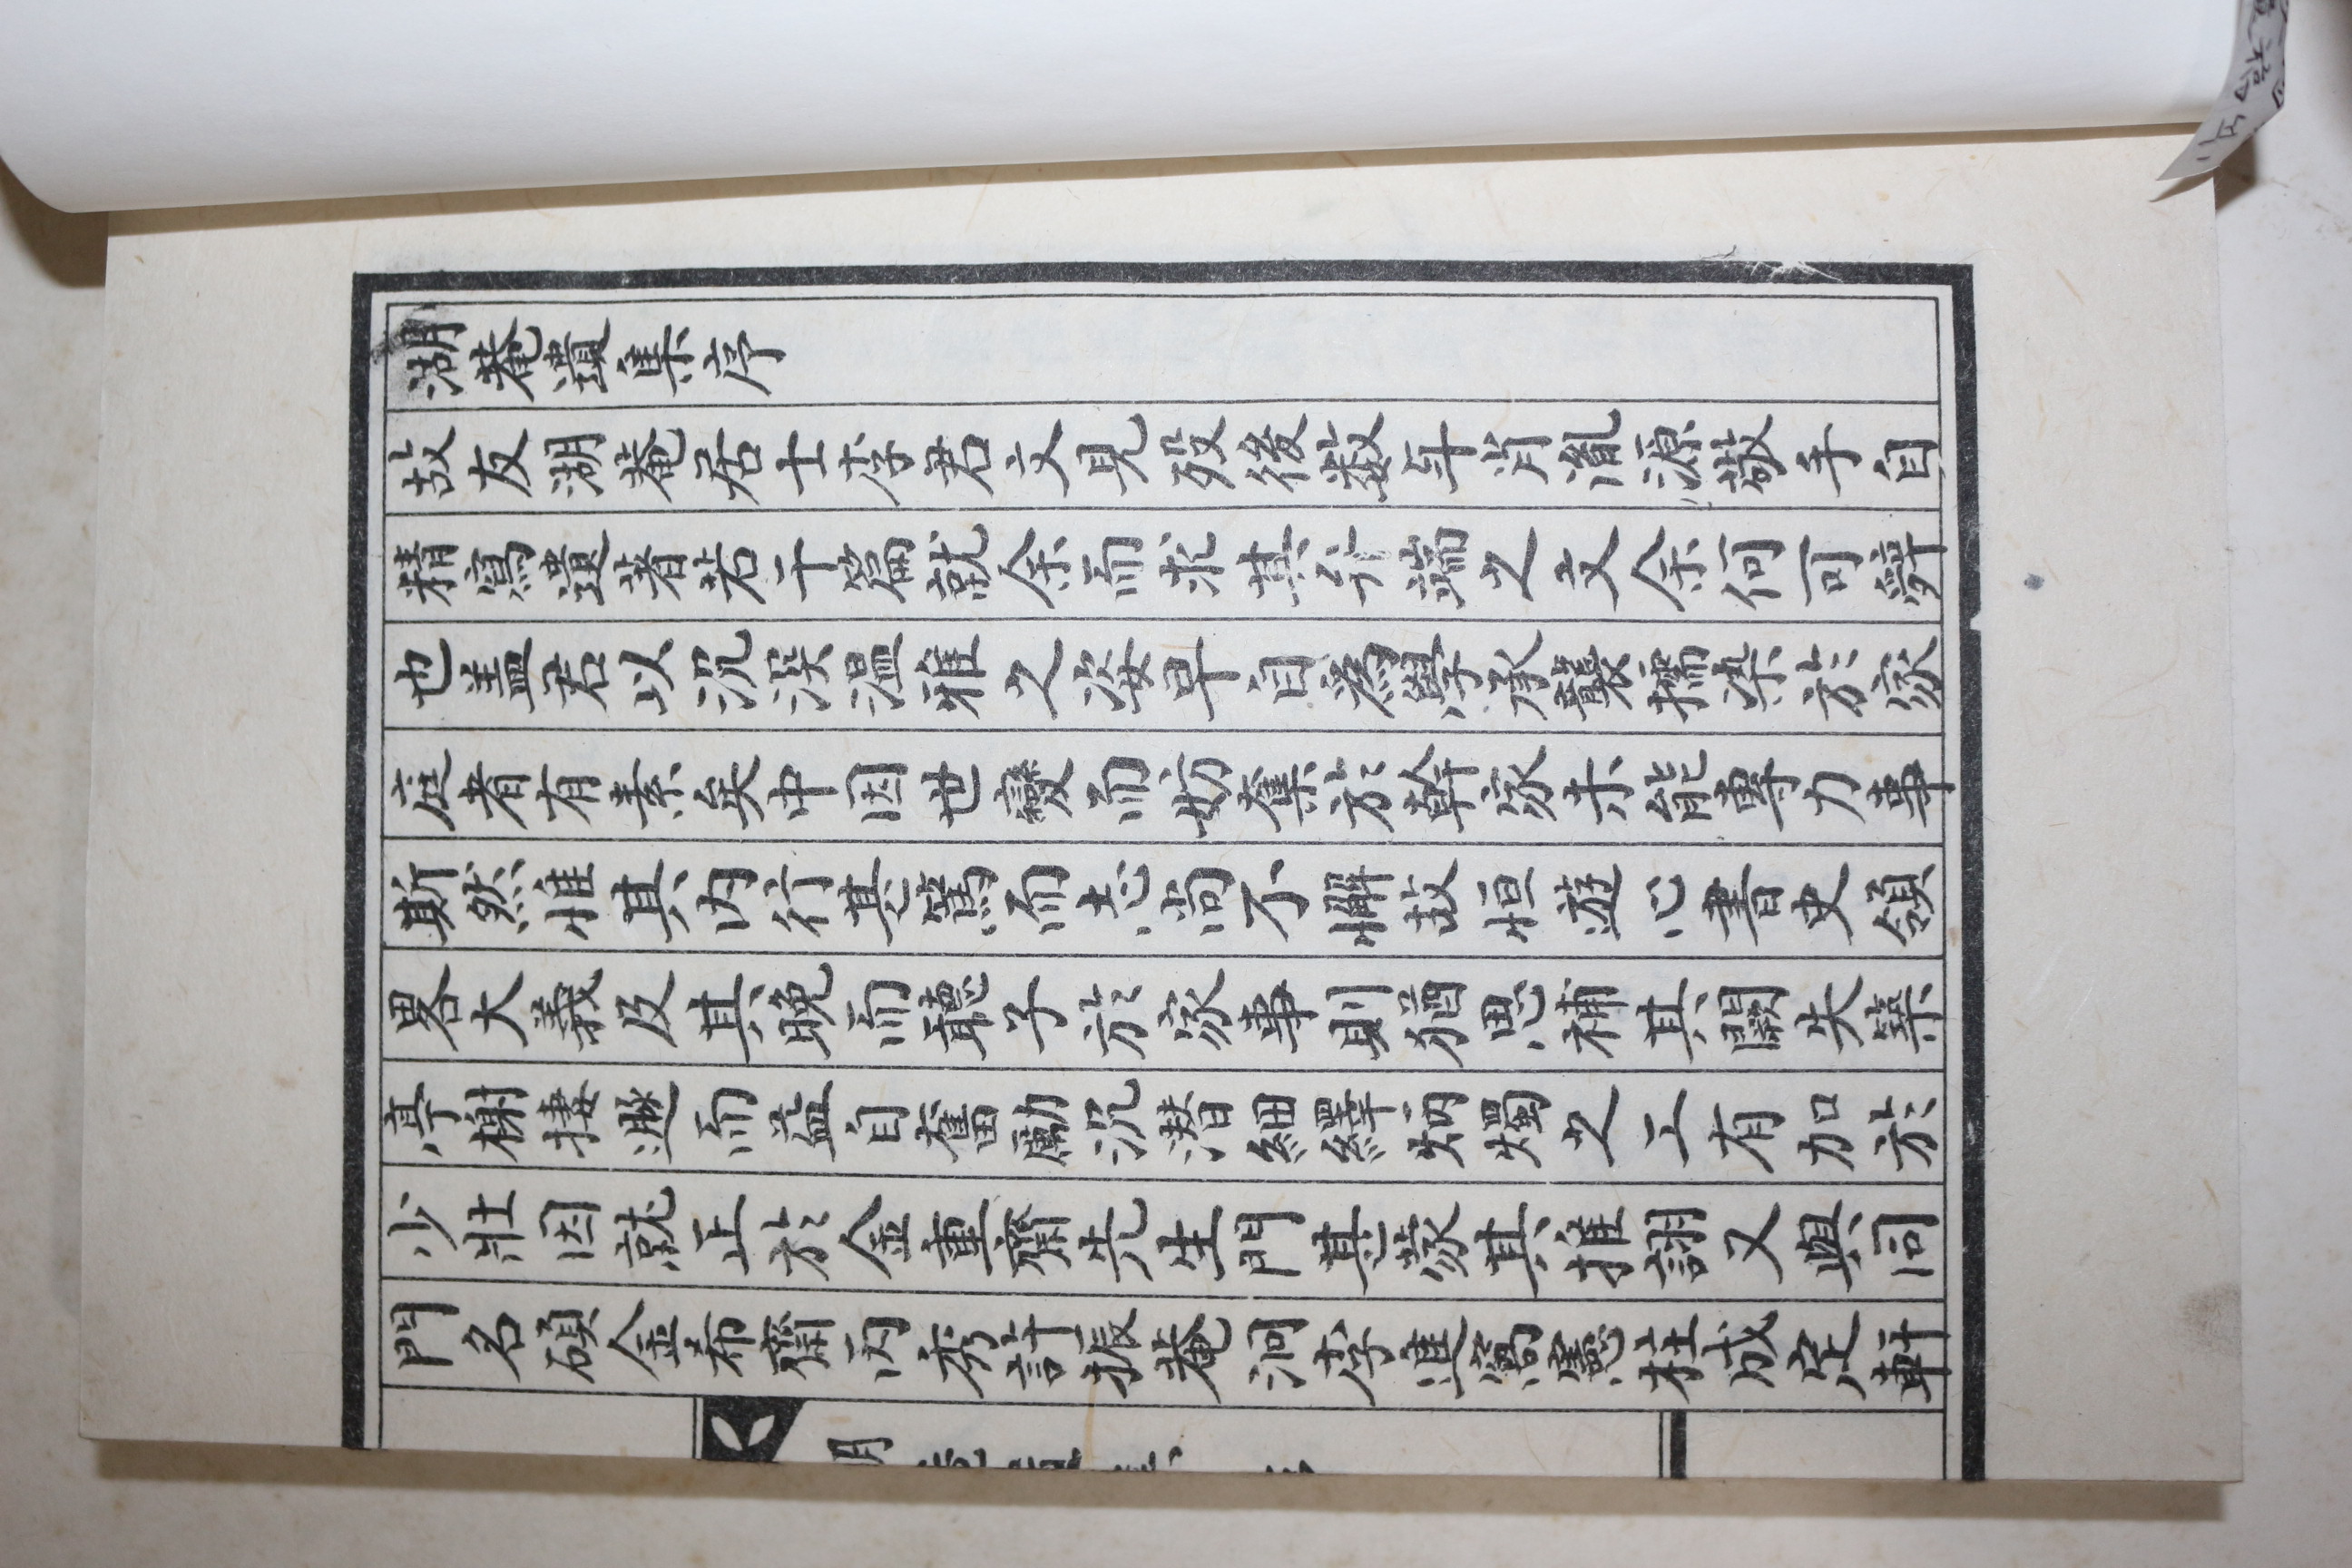 湖菴遺集序
故友湖菴居士李君文見歿後数年肖胤源敬手自
精寫遺著若干篇就余而求其弁端之文余何可辤
也盖君以沉深温雅之姿早自爲學承襲擩染於家
庭者有素矣中因世變而妨奪於幹家未能專力事
斯然惟其内行甚篤而志尚不懈故恒遊心書史領
畧大義及其晩而聽子於家事則猶思補其闕失築
亭榭捿遯而益自奮勵沉潜細繹炳燭之工有加於
少壯因就正於金重齋先生門甚蒙其推詡又與同
門名碩金希齋丙秀許振菴泂李進窩憲柱成定軒